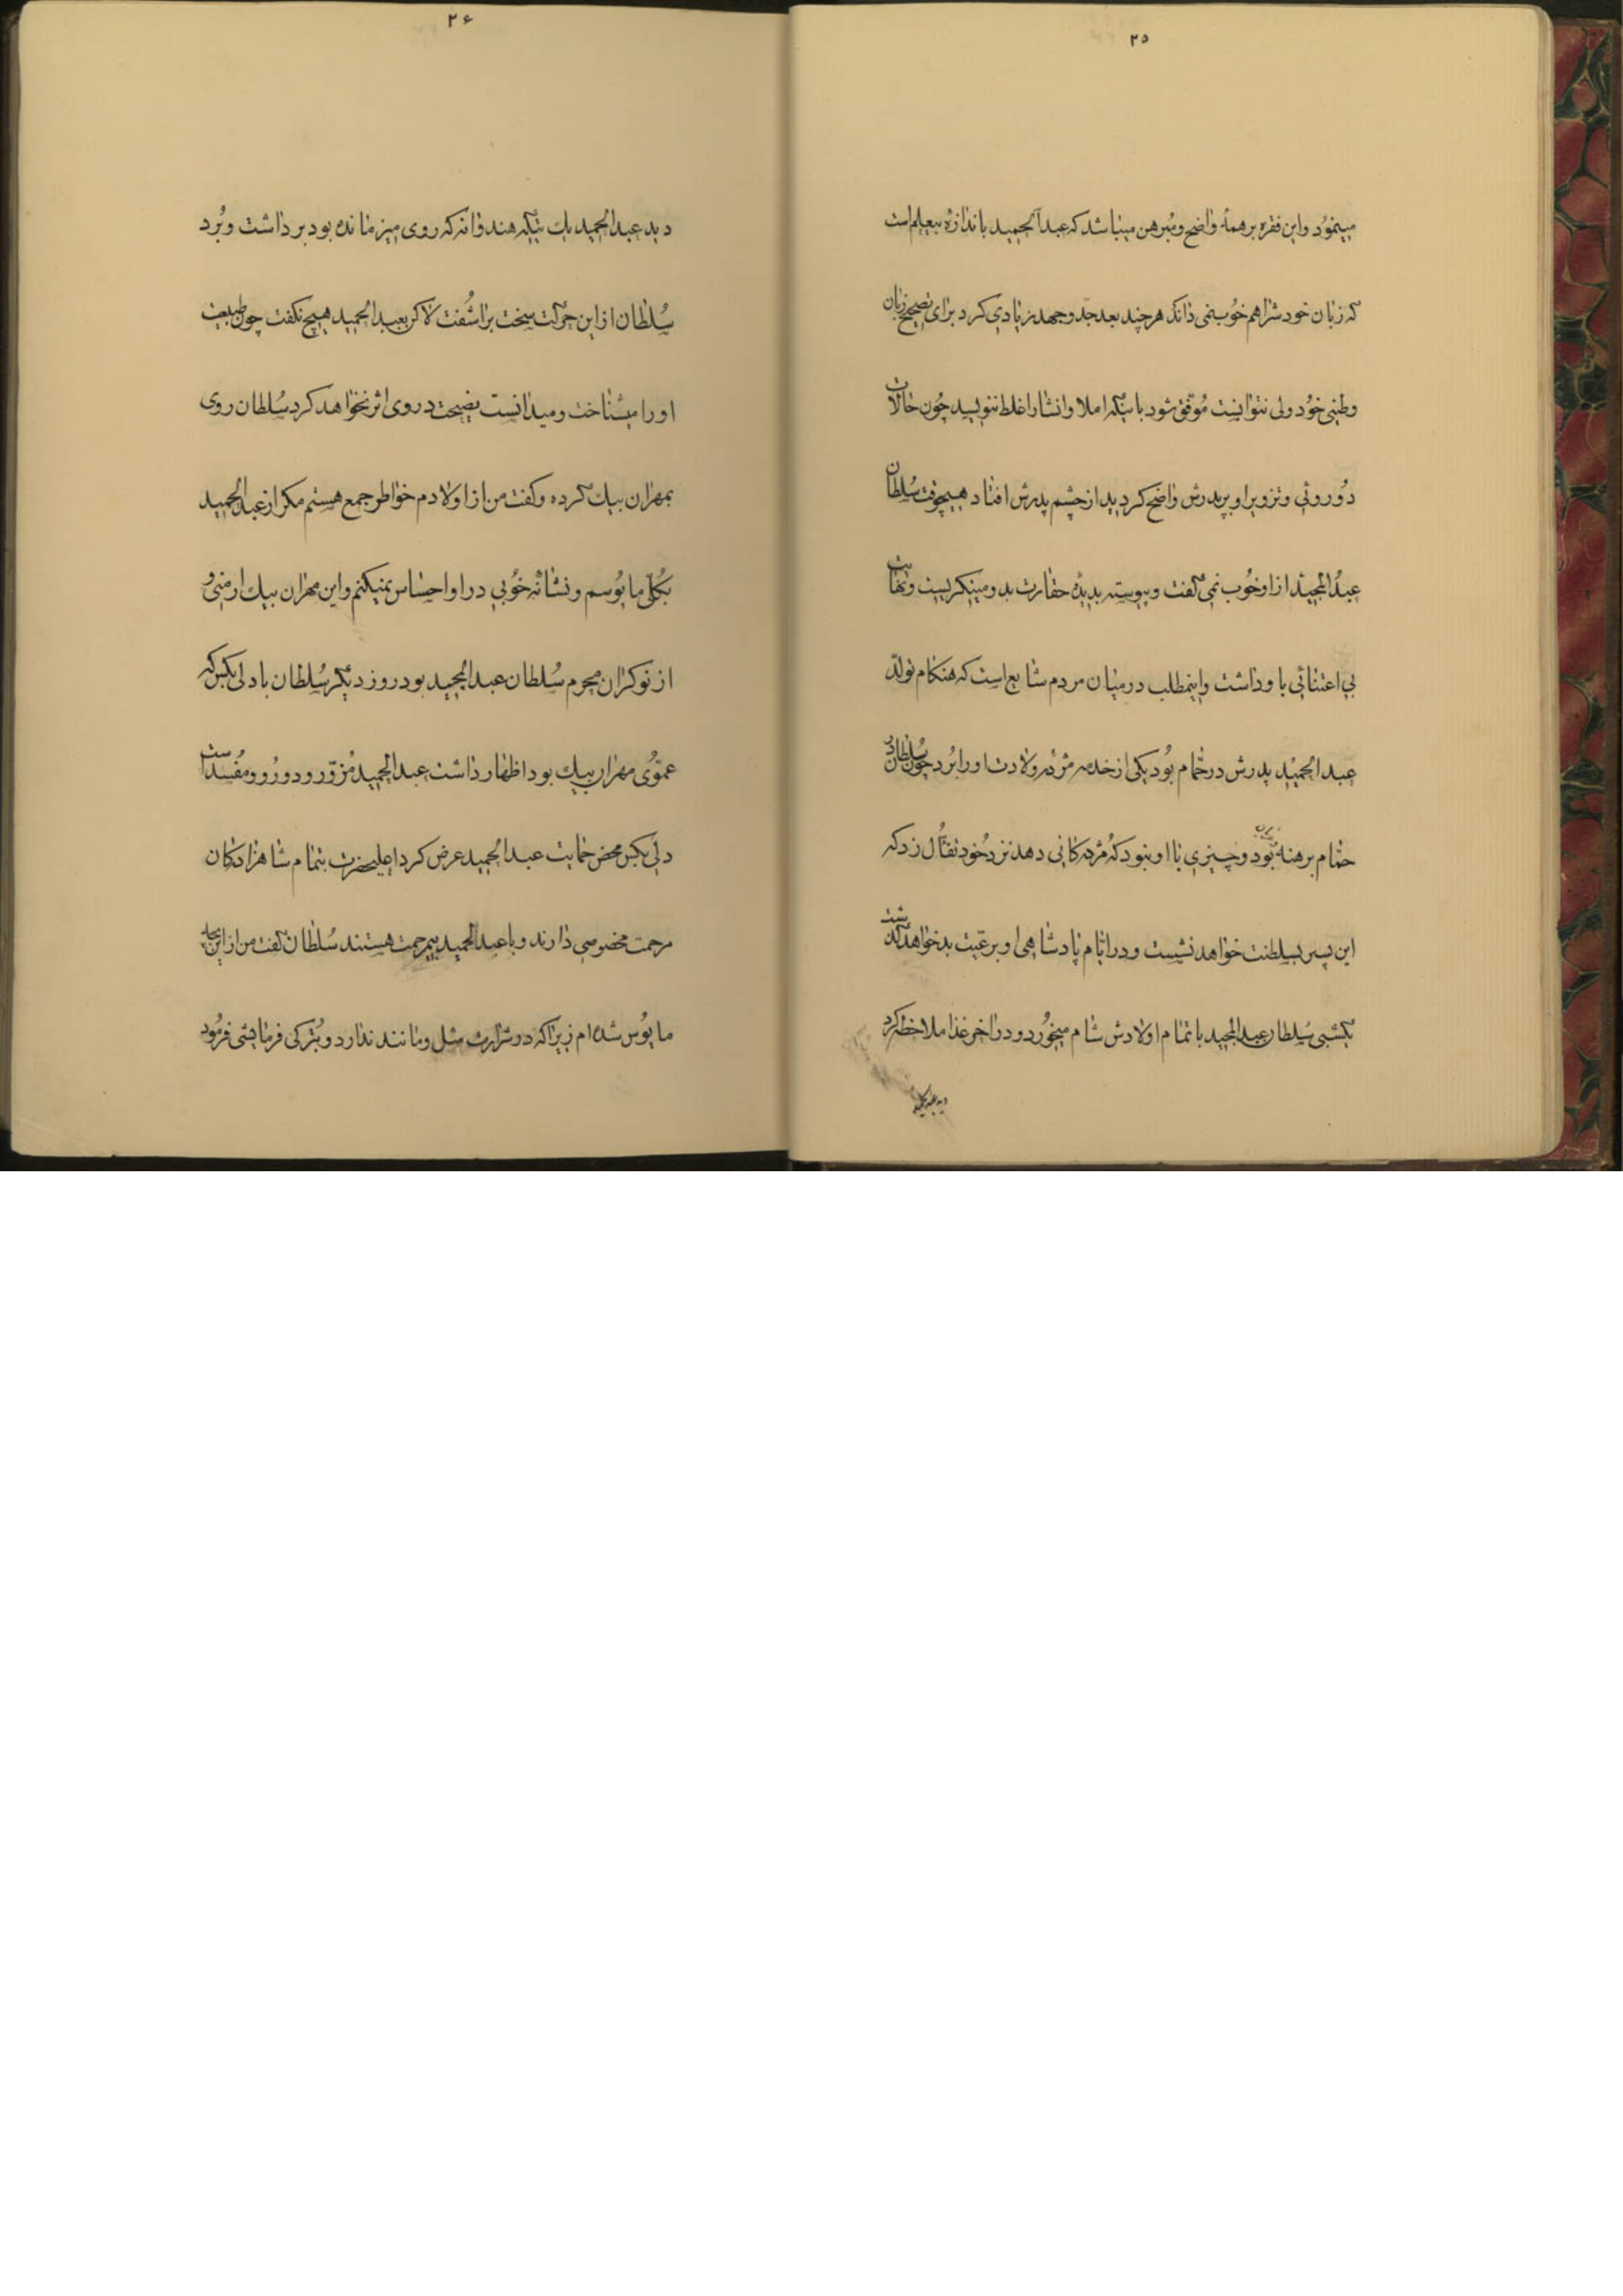 ۲۵
مینمود و این فقره بر همه واضح و مبرهن میباشد که عبدالحمید باندازهٔ بیعلم است
که زبان خودش را هم خوب نمی‌داند هر چند بعد جدّ و جهد زیادی کرد برای تصحیح زبان
وطنی خود ولی نتوانست موُفق شود باینکه املا و انشا را غلط ننویسد چون حالات
دوروئی و تزویر او بر پدرش واضح گردید از چشم پدرش افتاد هیچوقت سلطان
عبدُالمجید از او خوُب نمی‌گفت و پیوسته بدیدهٔ حقارت بدو مینگریست و نهایت
بی اعتنائی باو داشت و اینمطلب در میان مردم شایع است که هنگام تولّد
عبدالحمیْد پدرش در حمّام بوُد یکی از خدمه مژدهٔ ولادت او را بُرد چون سُلطان در
حمّام برهنه بوُد و چیزی با او نبود که مژدگانی دهد نزد خود تفأّل زد که
این پسر بسلطنت خواهد نشست و در ایّام پادشاهی او بر رعیّت بد خواهد گذشت
یکشبی سُلطان عبدالمجید با تمام اولادش شام میخوُرد و در آخر غذا ملاحظه کرد
دید عبدالحمید
۲۶
دید عبدالحمید یک تیکه هندوانه که روی میز مانده بود برداشت و بُرد
سُلطان از این حرکت سخت برآشُفت لاکن بعبدالحمید هیچ نگفت چون طبیعت
او را میشناخت و میدانست نصیحت در وی اثر نخواهد کرد سُلطان روی
بمهران بیک کرده و گفت من از اولادم خواطر جمع هستم مگر از عبدالحمید
بکُلّی مایوُسم و نشانهٔ خوُبی در او احساس نمیکنم و این مهران بیک ارمنی و
از نوکران محرم سُلطان عبدالمجید بود روز دیگر سُلطان با دلی بکس که
عموُی مهران بیک بود اظهار داشت عبدالحمید مُزوّر و دورُو و مُفسد است
دلی بکس محض حمایت عبدالحمید عرض کرد اعلیحضرت بتمام شاهزادگان
مرحمت مخصوصی دارند و با عبدالحمید بیمرحمت هستند سُلطان گفت من از این بچه
مایوُس شده‌ام زیرا که در شرارت مثل و مانند ندارد و بتُرکی فرمایشی فرمُود